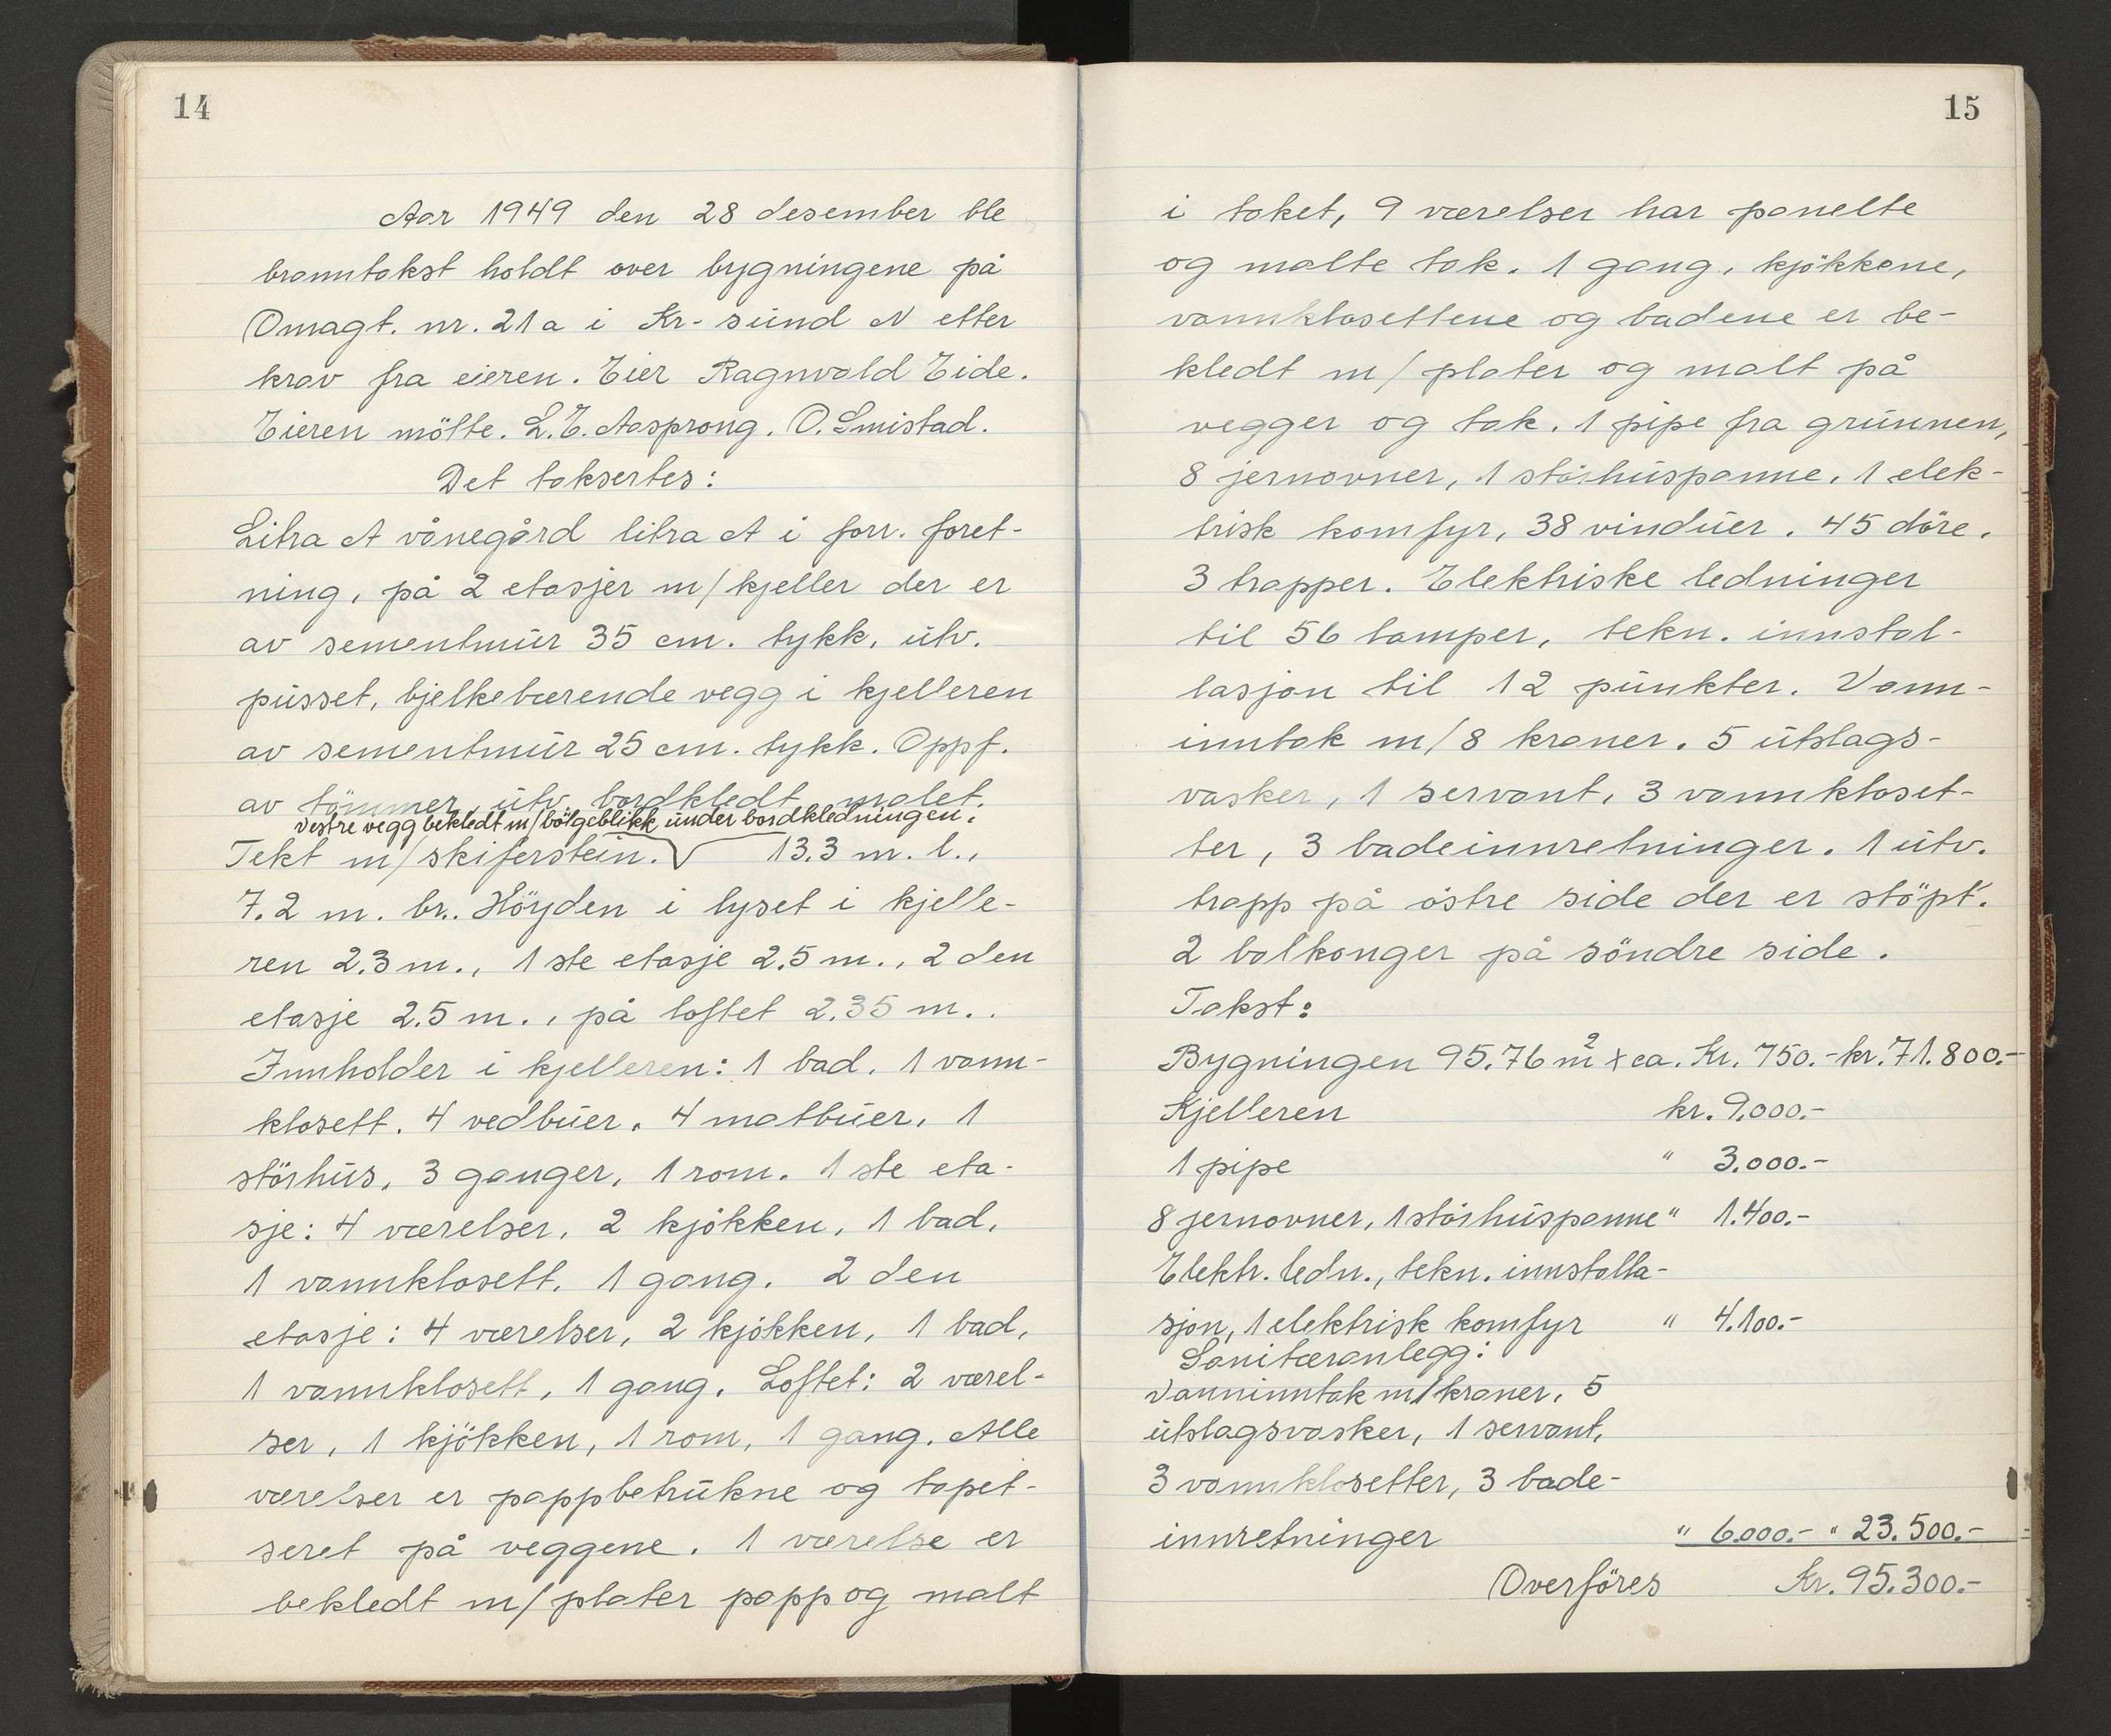 14
Aar 1949 den 28 desember ble
branntakst holdt over bygningene på
Omagt. nr. 21a i Kr-sund N etter
krav fra eieren. Eier Ragnvald Eide.
Eieren mötte. L.E. Aasprong. O. Smistad.
Det taksertes:
Litra A vånegård litra A i forr. foret-
ning, på 2 etasjer m/kjeller der er
av sementmur 35 cm. tykk, utv.
pusset, bjelkebærende vegg i kjelleren
av sementmur 25 cm. tykk. Oppf.
av tömmer, utv. bordkledt, malet.
vestre vegg bekledt m/bölgeblikk under bordkledningen.
Tekt m/skiferstein. 13.3 m. l.,
7.2 m. br.. Höyden i lyset i kjelle-
ren 2.3 m., 1ste etasje 2.5 m., 2den
etasje 2.5 m., på loftet 2.35 m..
Innholder i kjelleren: 1 bad, 1 vann-
klosett, 4 vedbuer, 4 matbuer, 1
störhus, 3 ganger, 1 rom. 1ste eta-
sje: 4 værelser, 2 kjökken, 1 bad,
1 vannklosett, 1 gang. 2den
etasje: 4 værelser, 2 kjökken, 1 bad,
1 vannklosett, 1 gang. Loftet: 2 værel-
ser, 1 kjökken, 1 rom, 1 gang. Alle
værelser er pappbetrukne og tapet-
seret på veggene. 1 værelse er
bekledt m/plater papp og malt
15
i taket, 9 værelser har panelte
og malte tak. 1 gang, kjökkene,
vannklosettene og badene er be-
kledt m/plater og malt på
vegger og tak. 1 pipe fra grunnen,
8 jernovner, 1 störhuspanne, 1 elek-
trisk komfyr, 38 vinduer, 45 döre,
3 trapper. Elektriske ledninger
til 56 lamper, tekn. innstal-
lasjon til 12 punkter. Vann-
inntak m/8 kraner. 5 utslags-
vasker, 1 servant, 3 vannkloset-
ter, 3 badeinnretninger. 1 utv.
trapp på östre side der er stöpt.
2 balkonger på söndre side.
Takst:
Bygningen 95.76 m² x ca. Kr. 750.- kr. 71.800.-
Kjelleren kr. 9.000.-
1 pipe " 3.000.-
8 jernovner, 1 störhuspanne " 1.400.-
Elektr. ledn., tekn. innstalla-
sjon, 1 elektrisk komfyr " 4.100.-
Sanitæranlegg:
Vanninntak m/kraner, 5
utslagsvasker, 1 servant,
3 vannklosetter, 3 bade-
innretninger " 6.000.- " 23.500.-
Overföres Kr. 95.300.-